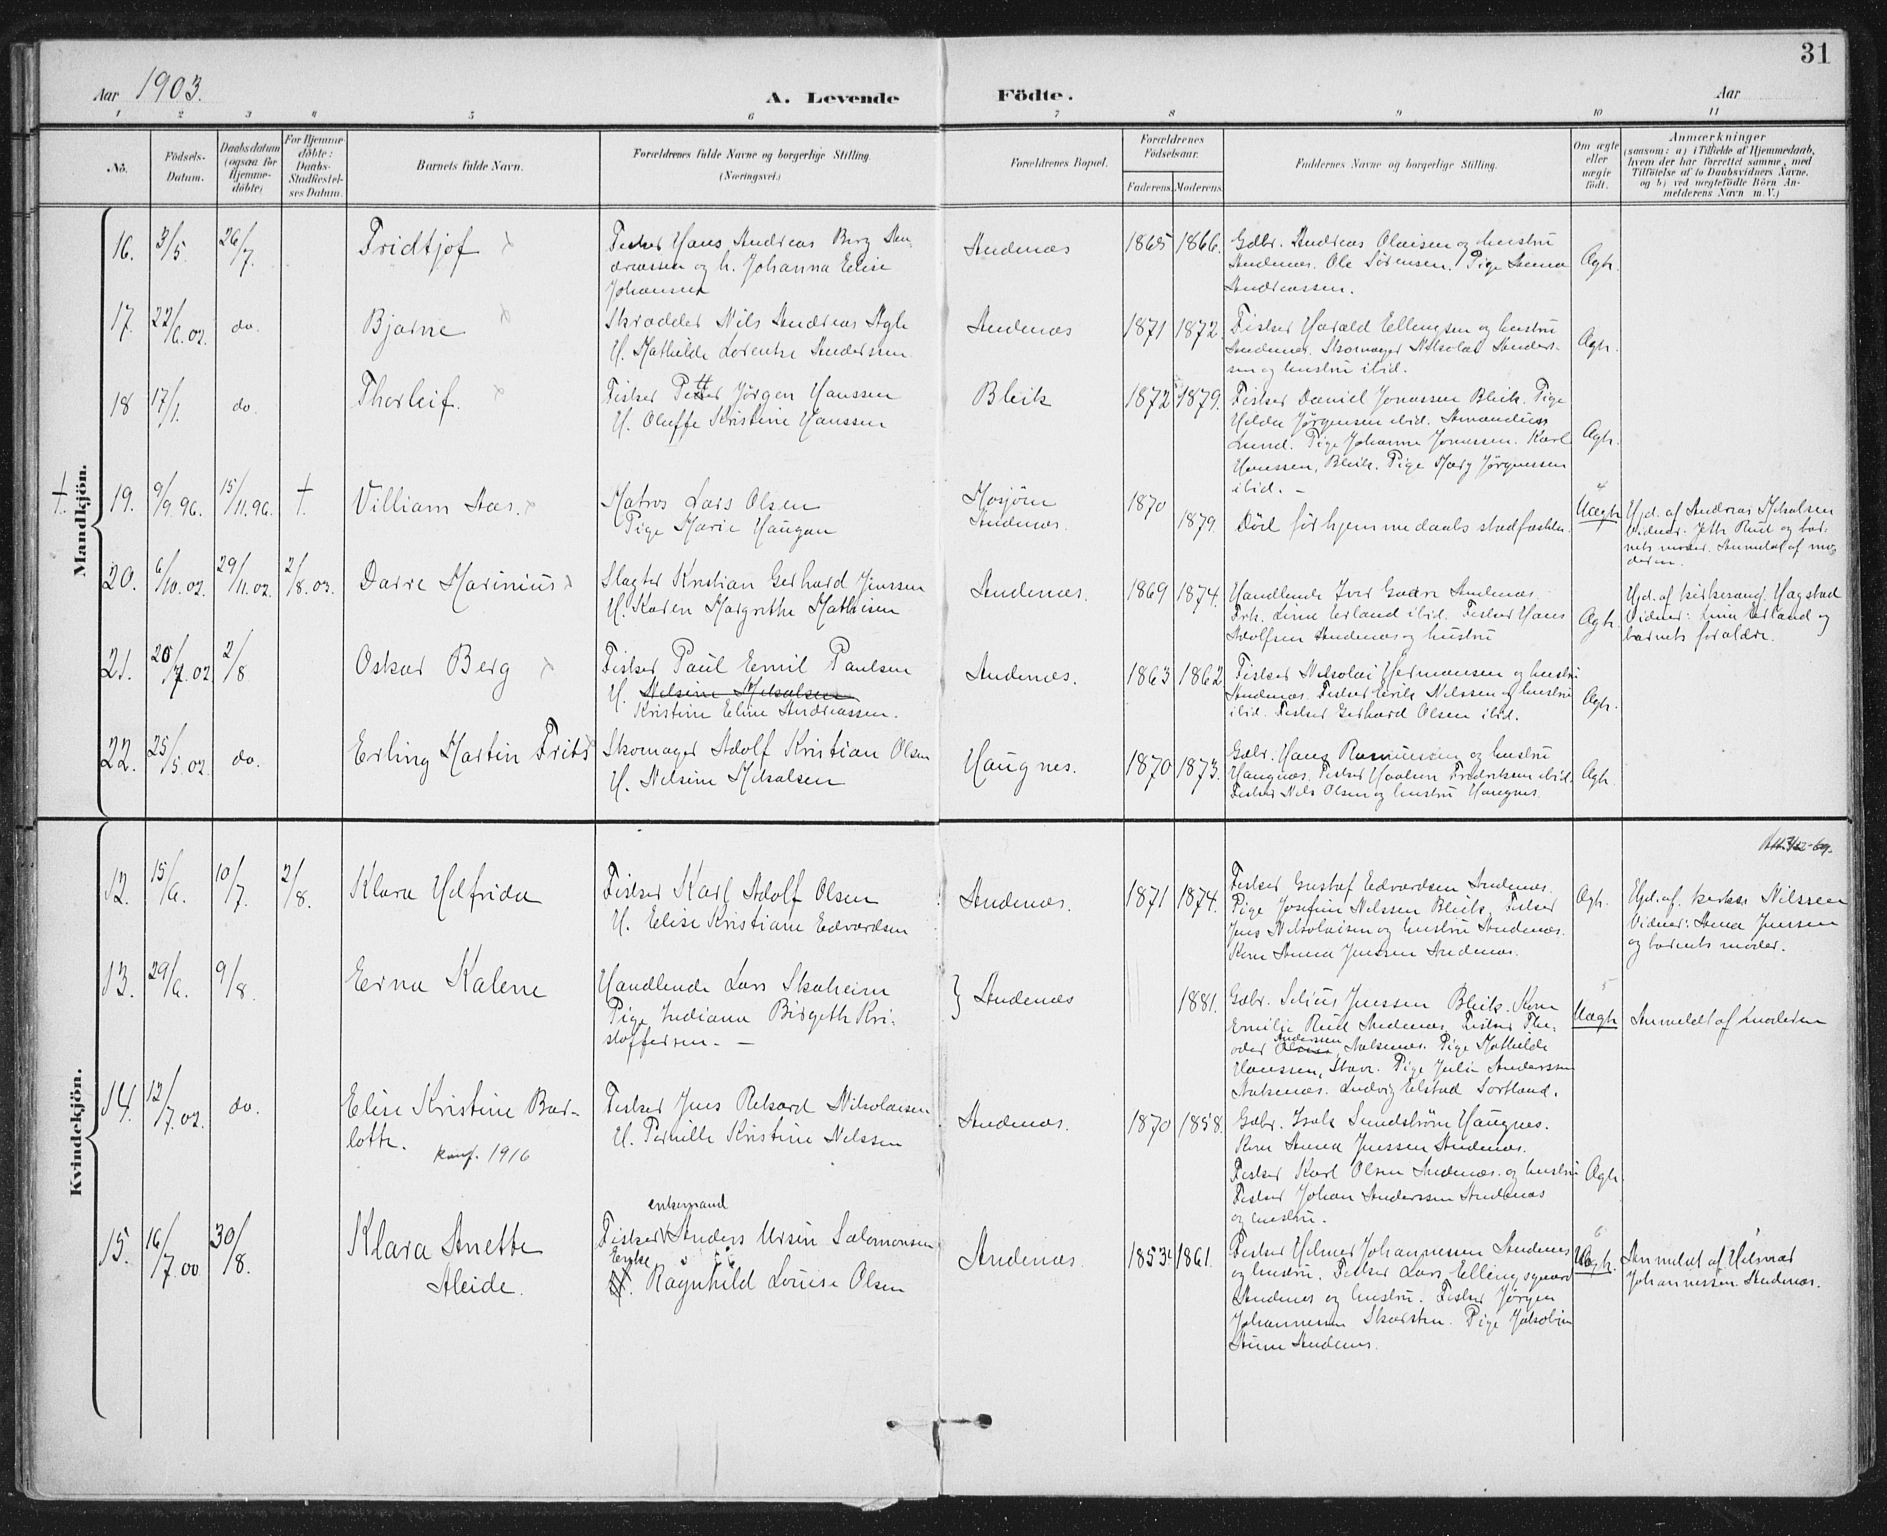 31
Aar 1903.
A. Levende Födte.
Aar
1 2 3 4 5 6 7 8 9 10 11
No.
Födsels-Datum.
Daabsdatum (ogsaa for Hjemmedöbte)
For Hjemmedöbte: Daabs-Stadfæstelses Datum.
Barnets fulde Navn.
Forældrenes fulde Navne og borgerlige Stilling. (Næringsvei.)
Forældrenes Bopæl.
Forældrenes Födselsaar.
Faderens. Moderens.
Faddernes Navne og borgerlige Stilling.
Om ægte eller uægte födt.
Anmærkninger
(saasom: a) i Tilfælde af Hjemmedaab,
hvem der har forrettet samme, med
Tilföielse af to Daabsvidners Navne,
og b) ved uægtefödte Börn An-
melderens Navn m. V.)
Mandkjön.
16. 3/5. 26/7. Fridtjof
Fisker Hans Andreas Berg An-
dreassen og h. Johanna Elise
Johansen
Andenæs 1865 1866.
Gdbr. Andreas Olaisen og hustru
Andenæs. Ole Sørensen. Pige Anna
Andreassen.
Ægh.
17. 22/6.02. do. Bjarne
Skrædder Nils Andreas Agh
H. Mathilde Lorentse Anderssen
Andenæs 1871 1872.
Fisker Harald Ellingsen og hustru
Andenæs. Skomager Nikolai Anders-
sen og hustru ibid.
Ægh.
18 17/1. do. Thorleif.
Fisker Petter Jørgen Hanssen
H. Oluffe Kristine Hanssen
Bleik 1872 1879.
Fisker Daniel Jonassen Bleik. Pige
Hilda Jørgensen ibid. Amandus
Lund. Pige Johanne Jonassen. Karl
Hanssen, Bleik. Pige Mary Jørgenssen
ibid. –
Ægh.
† 19. 9/9.96. 15/11.96. † Villiam Aas.
Matros Lars Olsen
Pige Marie Haugan
Mosjøen
Andenæs. 1870 1879.
Død før hjemmedaabs stadfæstelse.
4
Uægh
Hjd. af Andreas Mikalsen
Vidner. Jetta Rud og bar-
nets moder. Anmeldt af mo-
deren.
20. 6/10.02. 29/11.02. 2/8.03. Darre Marinius
Slagter Kristian Gerhard Jenssen
H. Karen Margrethe Mathisen
Andenæs. 1869 1874.
Handlende Ivar Gaare Andenæs.
Frk. Lina Erland ibid. Fisker Hans
Adolfsen Andenæs og hustru
Ægh.
Hjd. af kirkesang. Hagstad
Vidner: Lina Erland og
barnets forældre.
21. 20/7.02 2/8 Oskar Berg
Fisker Paul Emil Paulsen
H. Nelsine Mikalsen
Kristine Eline Andreassen.
Andenæs. 1863 1862
Fisker Nikolai Hermansen og hustru
Andenæs. Fisker Erik Nilssen og hustru
ibid. Fisker Gerhard Olsen ibid.
Ægh.
22. 25/5.02. do. Erling Martin Frits
Skomager Adolf Kristian Olsen
H. Nelsine Mikalsen
Haugnes. 1870 1873.
Gdbr. Hans Rasmussen og hustru
Haugnæs. Fisker Haakon Fredriksen ibid.
Fisker Nils Olsen og hustru Haugnes.
Ægh.
Kvindekjön.
12. 15/6. 10/7. 2/8. Klara Helfrida
Fisker Karl Adolf Olsen
H. Elise Kristiane Edvardsen
Andenæs. 1871 1874.
Fisker Gustaf Edvardsen Andenæs.
Pige Josefine Nilssen Bleik. Fisker
Jens Nikolaisen og hustru Andenæs.
Kone Anna Jenssen Andenæs.
Ægh.
Hjd. af. kirkes. Nilssen
Vidner: Anna Jenssen
og barnets moder.
13. 29/6. 9/8. Erna Kalene
Handlende Lars Skaheim
Pige Indiana Birgeth Kri-
stoffersen. –
} Andenæs 1881.
Gdbr. Selius Jenssen Bleik. Kone
Emilie Rud Andenæs. Fisker The-
odor Olsen Anderssen, Aaknæs. Pige Mathilde
Hanssen, Stave. Pige Julie Anderssen
Aaknæs. Ludvig Elstad Sortland.
5
Uægh
Anmeldt af moderen
14. 12/7.02. do. Elise Kristine Bar-
lotte. konf. 1916
Fisker Jens Rikard Nikolaisen
H. Pernille Kristine Nilssen
Andenæs. 1870 1858.
Gdbr. Isak Sundstrøm Haugnes.
Kone Anna Jenssen Andenæs.
Fisker Karl Olsen Andenæs. og hustru
Fisker Johan Anderssen Andenæs
og hustru.
Ægh.
15. 16/7.00 30/8. Klara Anette
Aleide.
enkemand
Fisker Anders Ursin Salomonsen
Enke
H. Ragnhild Lovise Olsen
Andenæs. 1853. 1861.
Fisker Helmer Johannessen Andenæs
og hustru. Fisker Lars Ellingsgaard
Andenæs og hustru. Fisker Jørgen
Johannessen Skarsten. Pige Jakobine
Aune Andenæs.
6
Uægh.
Anmeldt af Helmar
Johannessen Andenæs.